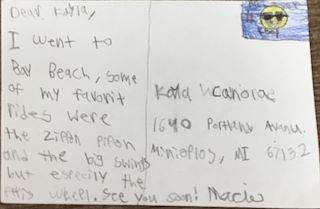 Dear Kayla,
I went to
Bay Beach, some
of my favorit
rides were
the Zippn Pippn
and the big swings
but especily the
fris wheel. See you soon! Macie
Kayla
1640 Portland Avanu.
Miniaplos, MI 67132